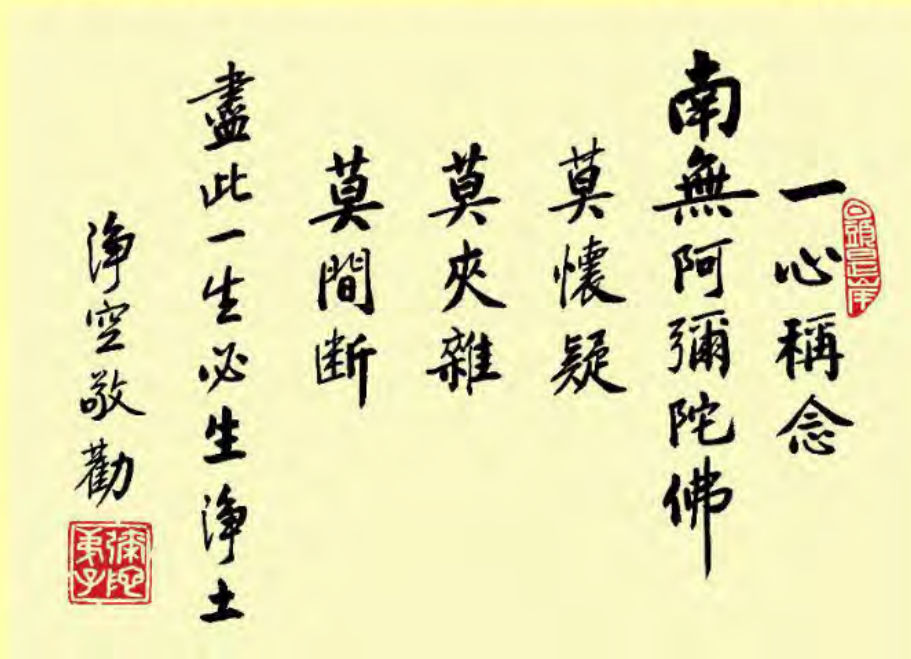 一心稱念
南無阿彌陀佛
莫懷疑
莫夾雜
莫間断
盡此一生必生淨土
淨空敬勸
彌陀弟子